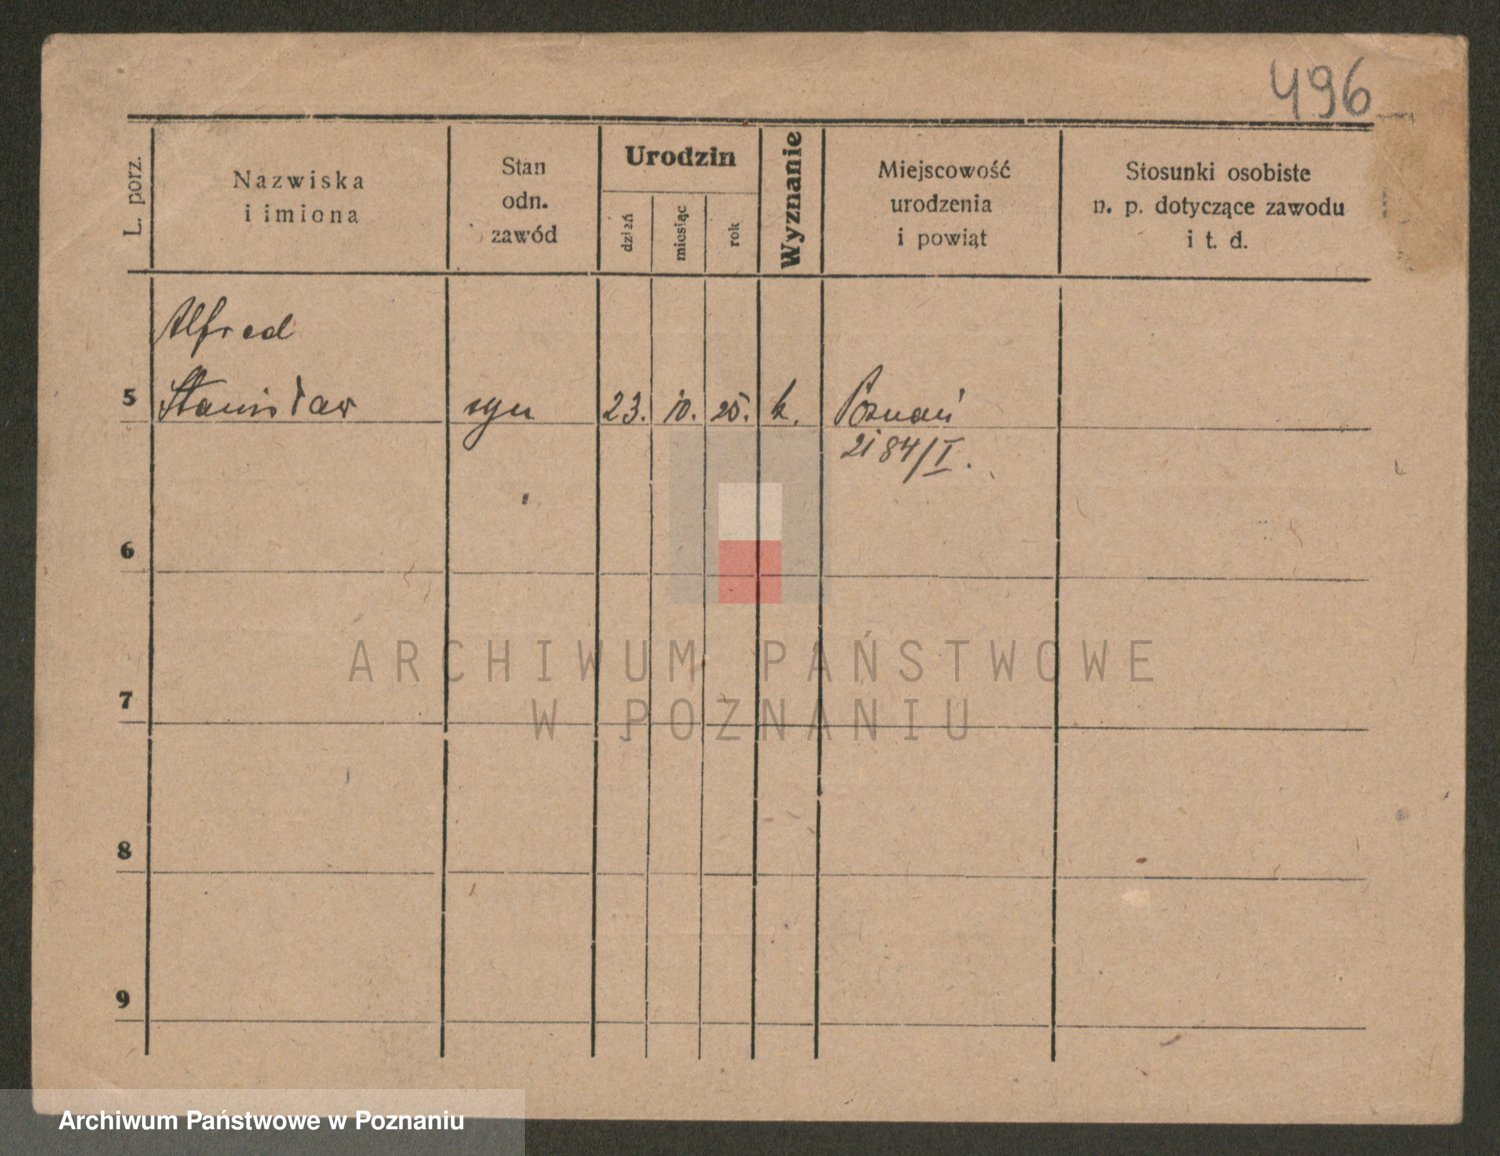 496
L. porz.
Nazwiska
i imiona
Stan
odn.
zawód
Urodzin
dzień
miesiąc
rok
Wyznanie
Miejscowość
urodzenia
i powiąt
Stosunki osobiste
n. p. dotyczące zawodu
i t. d.
Alfred
5 Stanisław syn 23. 10. 25. k. Poznań
2184/I.
6
7
8
9
ARCHIWUM PAŃSTWOWE
W POZNANIU
Archiwum Państwowe w Poznaniu